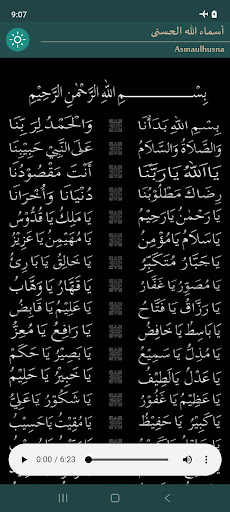 9:07
أسماء الله الحسنى
Asmaulhusna
بِسْمِ اللهِ الرَّحْمٰنِ الرَّحِيْمِ
بِسْمِ اللهِ بَدَأْنَا وَالْحَمْدُ لِرَبِّنَا
وَالصَّلَاةُ وَالسَّلَامُ عَلَى النَّبِيِّ حَبِيْبِنَا
يَا اَللهُ يَا رَبَّنَا أَنْتَ مَقْصُوْدُنَا
رِضَاكَ مَطْلُوْبُنَا دُنْيَانَا وَأُخْرَانَا
يَا رَحْمٰنُ يَا رَحِيْمُ يَا مَلِكُ يَا قُدُّوْسُ
يَا سَلَامُ يَا مُؤْمِنُ يَا مُهَيْمِنُ يَا عَزِيْزُ
يَا جَبَّارُ مُتَكَبِّرُ يَا خَالِقُ يَا بَارِئُ
يَا مُصَوِّرُ يَا غَفَّارُ يَا قَهَّارُ يَا وَهَّابُ
يَا رَزَّاقُ يَا فَتَّاحُ يَا عَلِيْمُ يَا قَابِضُ
يَا بَاسِطُ يَا خَافِضُ يَا رَافِعُ يَا مُعِزُّ
يَا مُذِلُّ يَا سَمِيْعُ يَا بَصِيْرُ يَا حَكَمُ
يَا عَدْلُ يَا لَطِيْفُ يَا خَبِيْرُ يَا حَلِيْمُ
يَا عَظِيْمُ يَا غَفُوْرُ يَا شَكُوْرُ يَا عَلِيُّ
يَا كَبِيْرُ يَا حَفِيْظُ يَا مُقِيْتُ يَا حَسِيْبُ
0:00 / 6:23